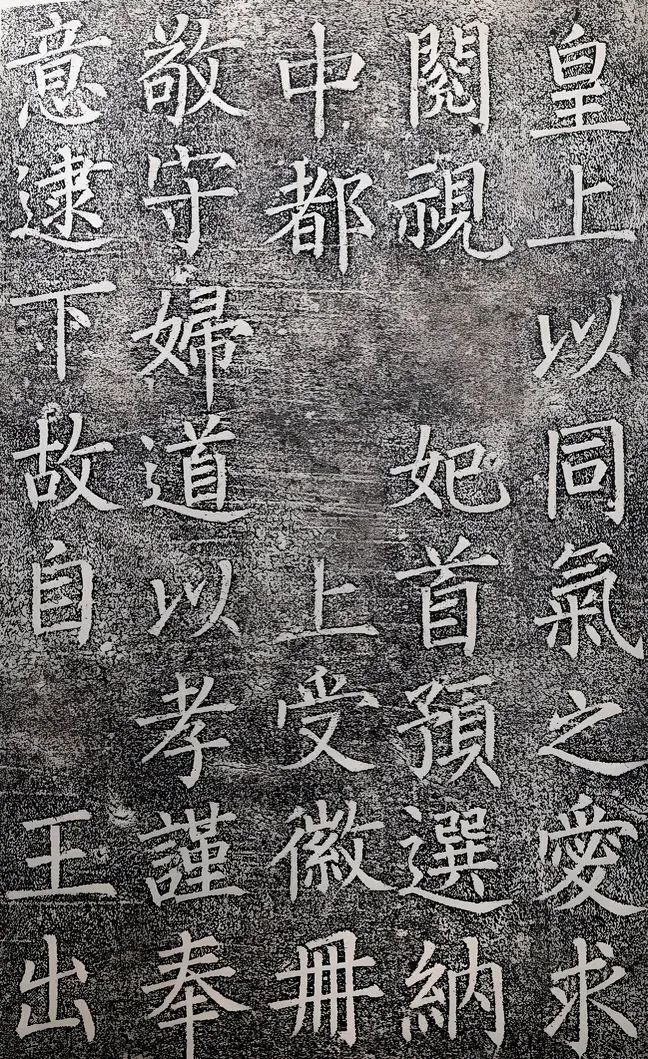 皇上以同氣之愛求
閱視妃首預選納
中都上受徽冊
敬守婦道以孝謹奉
意逮下故自王出